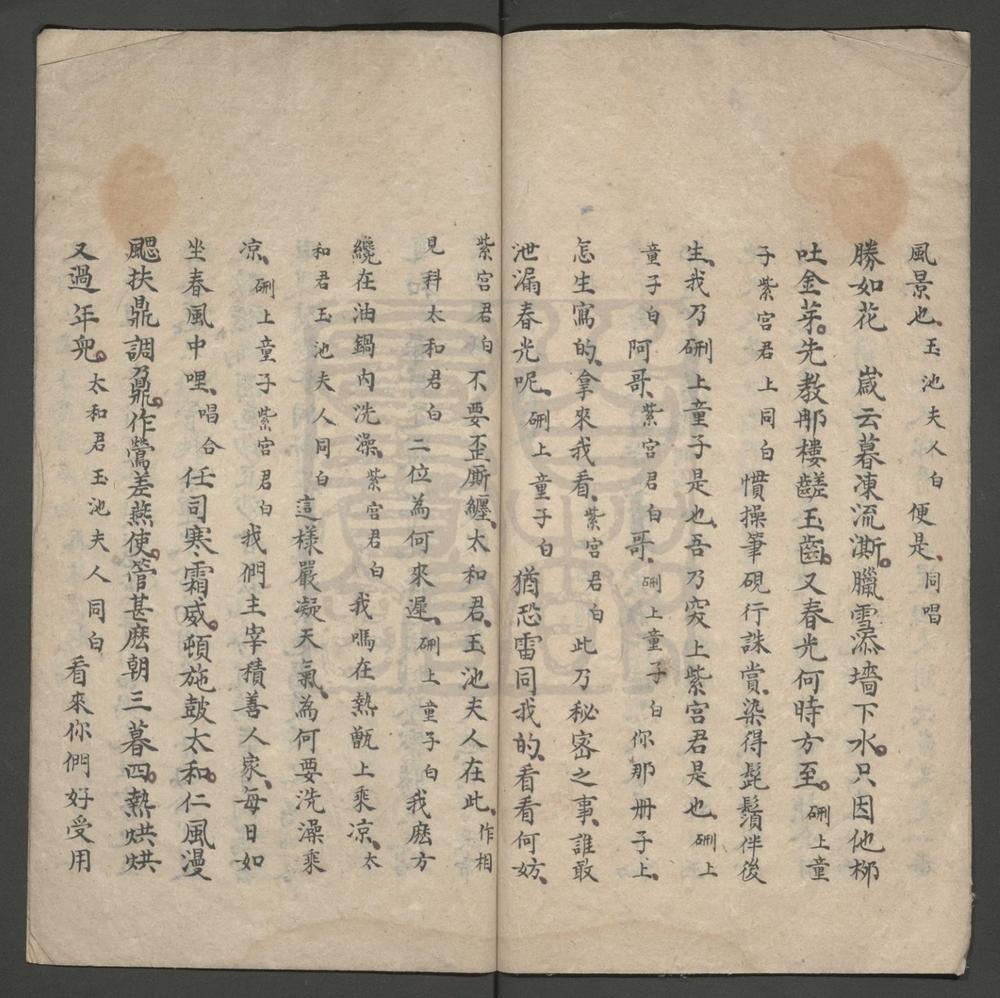 風景也、玉池夫人白便是、同唱
勝如花　歲云暮凍流澌。臘雪添墻下水。只因他栁
吐金芽。先教那樓䶥玉齒。又春光何時方至。𠜂上童
子紫宮君上同白慣操筆硯行誅賞、染得髭鬚伴後
生、我乃𠜂上童子是也、吾乃突上紫宮君是也、𠜂上
童子白阿哥、紫宮君白哥、𠜂上童子白你那册子上、
怎生寫的、拿來我看、紫宮君白此乃秘密之事、誰敢
泄漏春光呢、𠜂上童子白猶恐雷同我的、看看何妨、
紫宮君白不要歪厮纏、太和君、玉池夫人在此、作相
見科太和君白二位為何來遲、𠜂上童子白我麼方
纔在油鍋內洗澡、紫宮君白我嗎在熱甑上乘凉、太
和君玉池夫人同白這樣嚴凝天氣、為何要洗澡乘
凉、𠜂上童子紫宮君白我們主宰積善人家、每日如
坐春風中哩、唱合任司寒霜威。頓施皷太和。仁風漫
颸扶鼎調鼐。作鶯差燕使。管甚麽朝三暮四。熱烘烘
又過年兒。太和君玉池夫人同白看來你們好受用